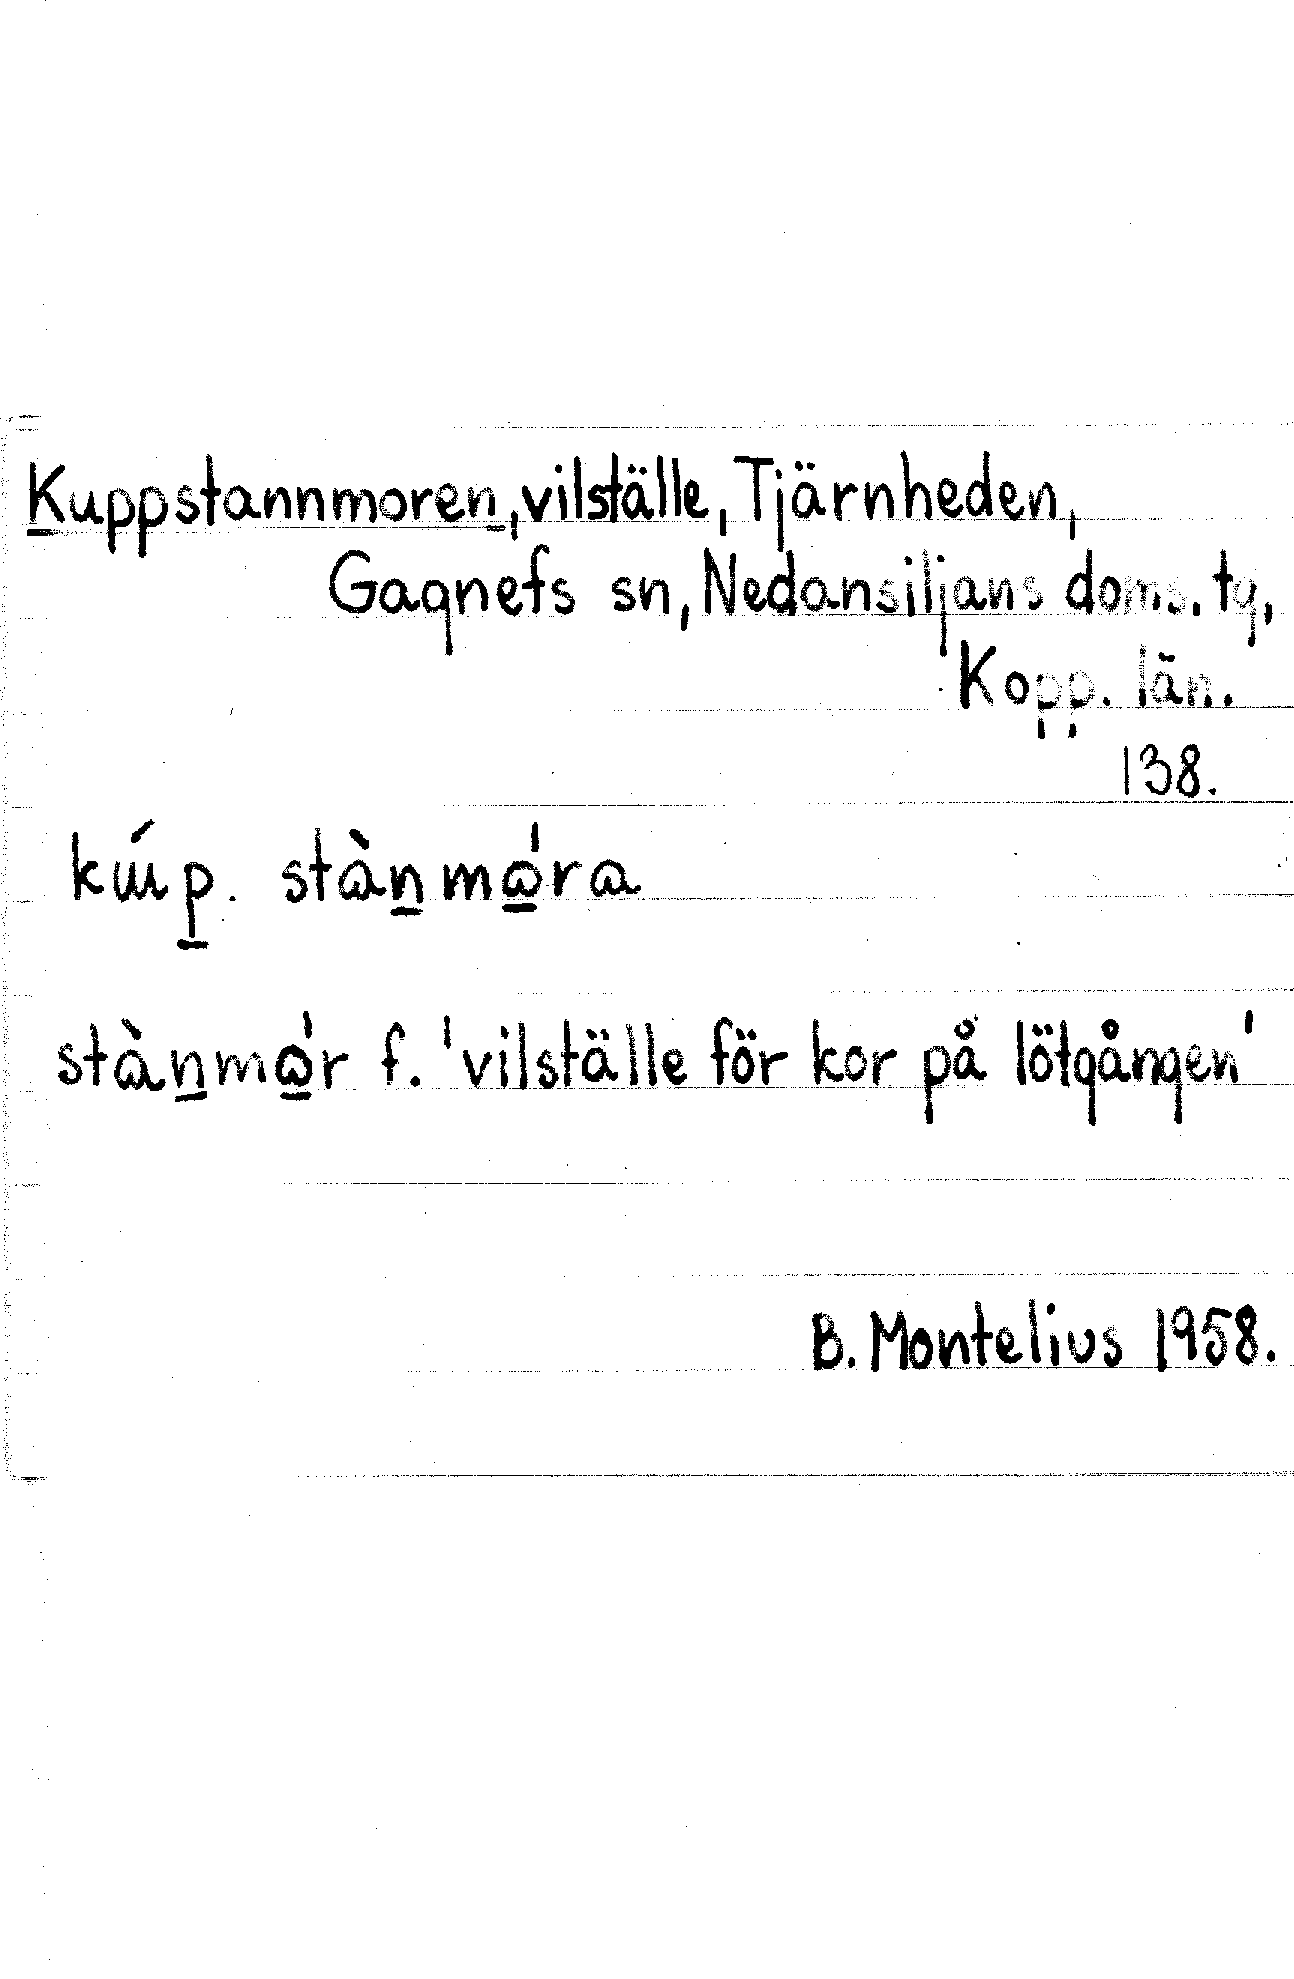 Kuppstannmoren, vilställe, Tjärnheden,
Gagnefs sn, Nedansiljans doms. tg,
Kopp. län.
138.
kɯ́p̱. stàṉmɷ̱́ra
stàṉmɷ̱́r f. 'vilställe för kor på lötgången'
B. Montelius 1958.